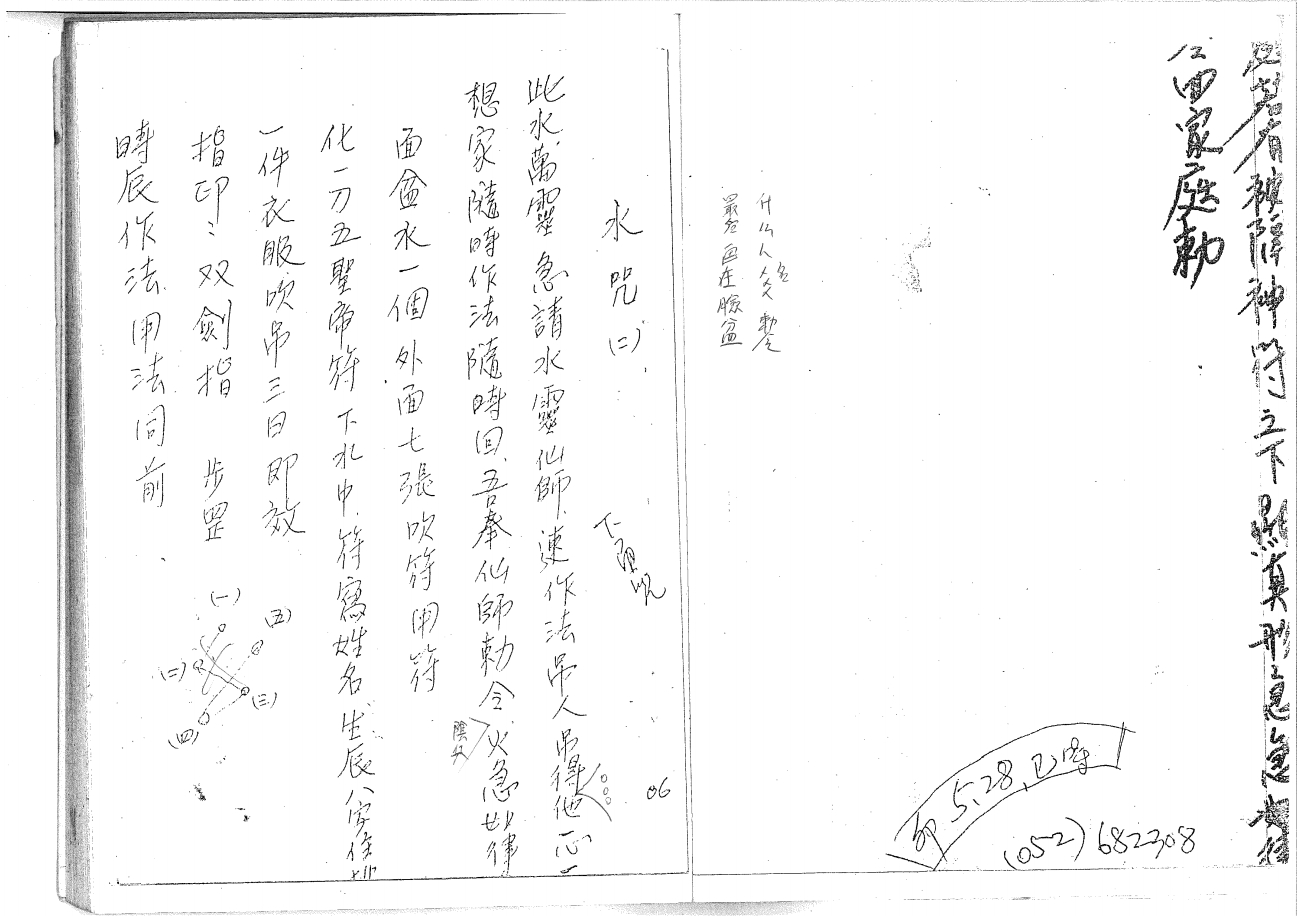 若有被障神符之下照真形急急如律
回家庭勅
什么人公名勅令
最色画在臉盆
卯5、28、巳時
(052)682308
水咒(二)
下陰咒
此水萬靈急請水靈仙師.速作法吊人吊得他心一
想家隨時作法隨時回.吾奉仙師勅令火急如律
陰外
面盆水一個外面七張吹符用符
化一刀五聖帝符下水中.符寫姓名生辰八字住址
一件衣服吹吊三日即效
指印:双劍指 步罡
時辰作法.用法同前.
(一)
(五)
(二)
(三)
(四)
06